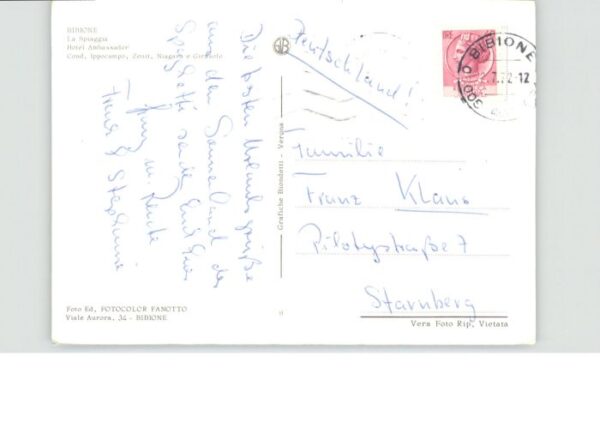 BIBIONE
La Spiaggia
Hotel Ambassador
Cond. Ippocampo, Zenit, Niagara e
Die besten Urlaubsgrüße
aus dem Sonnenland der
Spaghetti senden Euch
Franz & Stephanie
Foto Ed. FOTOCOLOR FANOTTO
Viale Aurora, 34 - BIBIONE
Grafiche Biondetti - Verona
Deutschland!
BIBIONE
Familie
Franz Klaus
Pilotystraße 7
Starnberg
Vera Foto Rip. Vietata